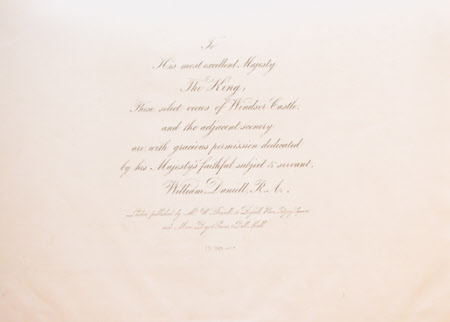 To
His most excellent Majesty
The King,
These select views of Windsor Castle,
and the adjacent scenery
are with gracious permission dedicated
by his Majesty's faithful subject & servant,
William Daniell, R.A.
London, published by Mr. W. Daniell,
and